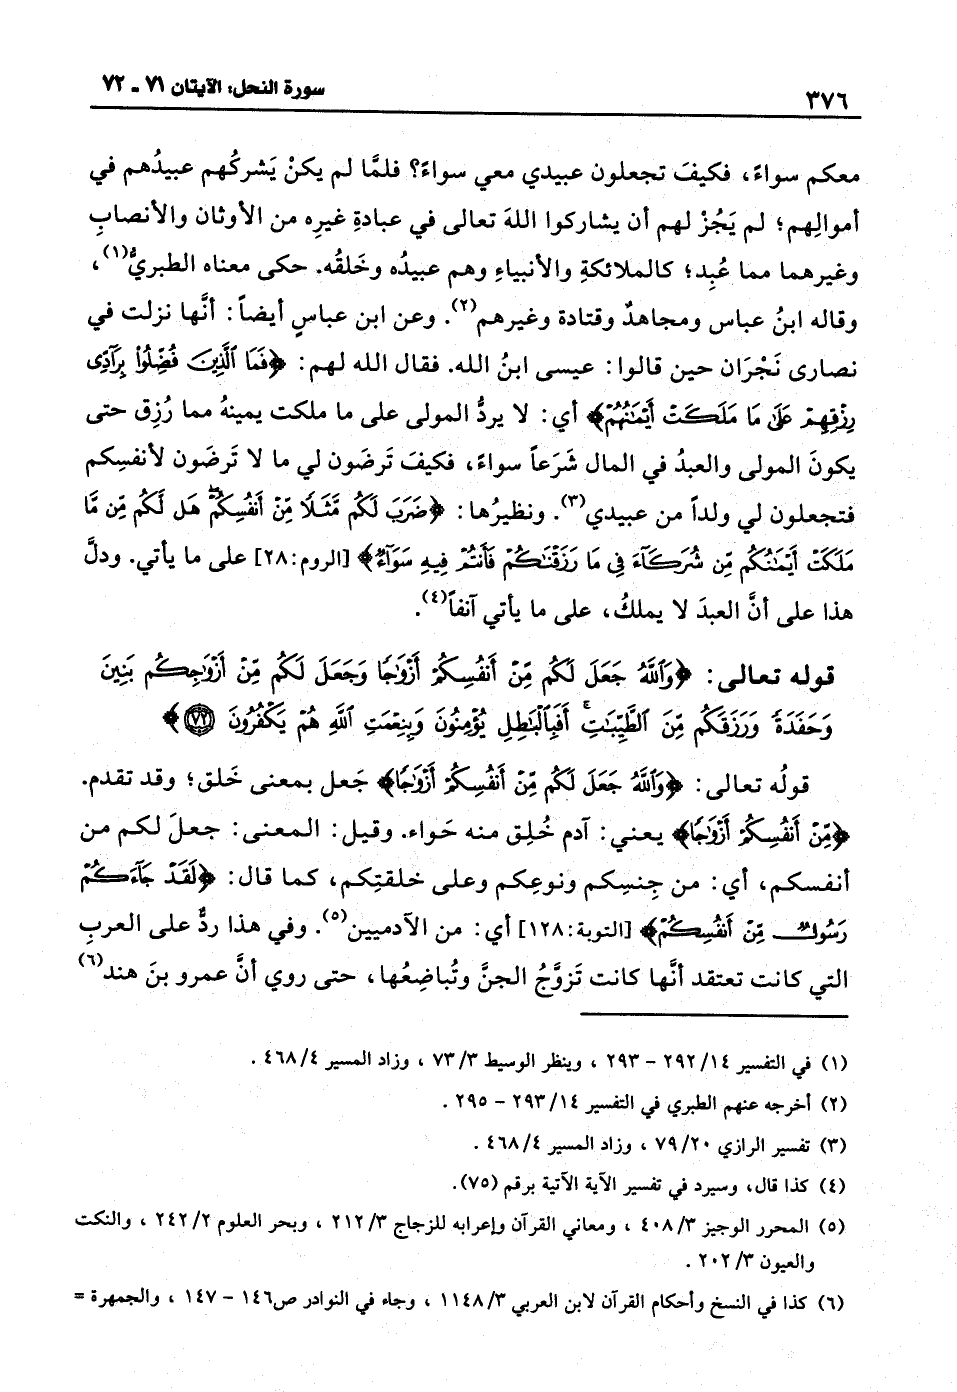 ٣٧٦
سورة النحل: الآيتان ٧١ ـ ٧٢
معكم سواءً، فكيفَ تجعلون عبيدي معي سواءً؟ فلمَّا لم يكنْ يَشركُهم عبيدُهم في
أموالِهم؛ لم يَجُزْ لهم أن يشاركوا اللهَ تعالى في عبادةِ غيرِه من الأوثان والأنصابِ
وغيرهما مما عُبِد؛ كالملائكةِ والأنبياءِ وهم عبيدُه وخَلقُه. حكى معناه الطبريُّ(١)،
وقاله ابنُ عباس ومجاهدٌ وقتادة وغيرهم(٢). وعن ابن عباسٍ أيضاً: أنَّها نزلت في
نصارى نَجْرَان حين قالوا: عيسى ابنُ الله. فقال الله لهم: ﴿فَمَا ٱلَّذِينَ فُضِّلُوا۟ بِرَآدِّى
رِزْقِهِمْ عَلَىٰ مَا مَلَكَتْ أَيْمَـٰنُهُمْ﴾ أي: لا يردُّ المولى على ما ملكت يمينهُ مما رُزِق حتى
يكونَ المولى والعبدُ في المال شَرَعاً سواءً، فكيفَ تَرضَون لي ما لا تَرضَون لأنفسِكم
فتجعلون لي ولداً من عبيدي(٣). ونظيرُها: ﴿ضَرَبَ لَكُم مَّثَلًا مِّنْ أَنفُسِكُمْ ۖ هَل لَّكُم مِّن مَّا
مَلَكَتْ أَيْمَـٰنُكُم مِّن شُرَكَآءَ فِى مَا رَزَقْنَـٰكُمْ فَأَنتُمْ فِيهِ سَوَآءٌ﴾ [الروم:٢٨] على ما يأتي. ودلَّ
هذا على أنَّ العبدَ لا يملكُ، على ما يأتي آنفاً(٤).
قوله تعالى: ﴿وَٱللَّهُ جَعَلَ لَكُم مِّنْ أَنفُسِكُمْ أَزْوَٰجًا وَجَعَلَ لَكُم مِّنْ أَزْوَٰجِكُم بَنِينَ
وَحَفَدَةً وَرَزَقَكُم مِّنَ ٱلطَّيِّبَـٰتِ ۚ أَفَبِٱلْبَـٰطِلِ يُؤْمِنُونَ وَبِنِعْمَتِ ٱللَّهِ هُمْ يَكْفُرُونَ ٧٢﴾
قولُه تعالى: ﴿وَٱللَّهُ جَعَلَ لَكُم مِّنْ أَنفُسِكُمْ أَزْوَٰجًا﴾ جَعل بمعنى خَلق؛ وقد تقدم.
﴿مِّنْ أَنفُسِكُمْ أَزْوَٰجًا﴾ يعني: آدم خُلِق منه حَواء. وقيل: المعنى: جعلَ لكم من
أنفسكم، أي: من جِنسِكم ونوعِكم وعلى خلقتِكم، كما قال: ﴿لَقَدْ جَآءَكُمْ
رَسُولٌ مِّنْ أَنفُسِكُمْ﴾ [التوبة:١٢٨] أي: من الآدميين(٥). وفي هذا ردٌّ على العربِ
التي كانت تعتقد أنَّها كانت تَزوَّجُ الجنَّ وتُباضِعُها، حتى روي أنَّ عمرو بنَ هند(٦)
(١) في التفسير ١٤/ ٢٩٢ – ٢٩٣ ، وينظر الوسيط ٣/ ٧٣ ، وزاد المسير ٤/ ٤٦٨ .
(٢) أخرجه عنهم الطبري في التفسير ١٤/ ٢٩٣ – ٢٩٥ .
(٣) تفسير الرازي ٢٠/ ٧٩ ، وزاد المسير ٤/ ٤٦٨ .
(٤) كذا قال، وسيرد في تفسير الآية الآتية برقم (٧٥).
(٥) المحرر الوجيز ٣/ ٤٠٨ ، ومعاني القرآن وإعرابه للزجاج ٣/ ٢١٢ ، وبحر العلوم ٢/ ٢٤٢ ، والنكت
والعيون ٣/ ٢٠٢ .
(٦) كذا في النسخ وأحكام القرآن لابن العربي ٣/ ١١٤٨ ، وجاء في النوادر ص١٤٦ – ١٤٧ ، والجمهرة =